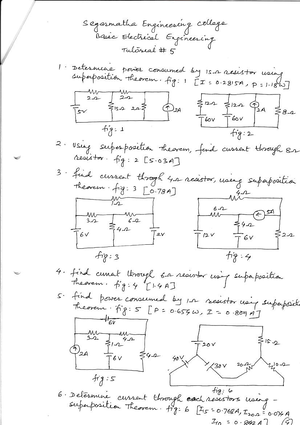 Sagarmatha Engineering College
Basic Electrical Engineering
Tutorial # 5
1. Determine power consumed by 15Ω resistor using
superposition theorem. fig: 1 [I = 0.2815A, P = 1.18W]
2Ω 2Ω
5V 15Ω 2Ω 2A
fig: 1
12Ω 12Ω 2A 8Ω
60V 60V
fig: 2
2. Using superposition theorem, find current through 8Ω
resistor. fig: 2 [5.03A]
3. find current through 4Ω resistor, using superposition
theorem. fig: 3 [0.78A]
3Ω 6Ω
4Ω
6V 2V
fig: 3
4Ω
6Ω 5A
4Ω
12V 6V 2Ω
fig: 4
4. find current through 6Ω resistor using superposition
theorem. fig: 4 [1.4A]
5. find power consumed by 1Ω resistor using superposition
theorem. fig: 5 [P = 0.654W, I = 0.809A]
6V
3Ω 4Ω
1Ω
2A 6V 4Ω
fig: 5
20V 15Ω
40V 30V 20Ω 10Ω
fig: 6
6. Determine current through each resistors using
superposition Theorem. fig: 6